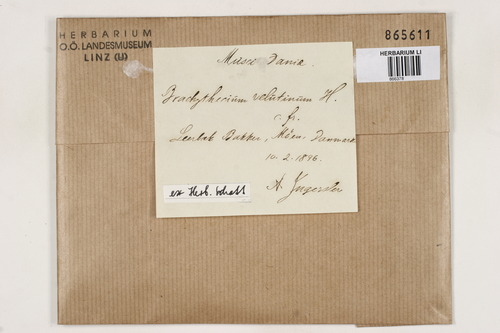 HERBARIUM
O.Ö. LANDESMUSEUM
LINZ (LI)
865611
HERBARIUM LI
Musci Daniæ.
Brachythecium velutinum H.
c. fr.
Bakker, Möen, Danmark
10.2.1896.
A.
ex Herb. Schatt